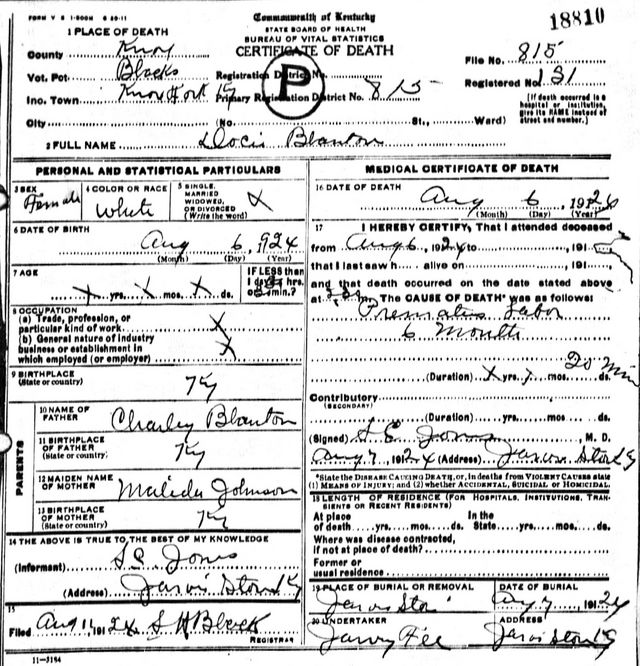 FORM V S 1-500M 6-20-11
Commonwealth of Kentucky
STATE BOARD OF HEALTH
BUREAU OF VITAL STATISTICS
CERTIFICATE OF DEATH
18810
1 PLACE OF DEATH
County Knox
Vot. Pct Blacks
Inc. Town Knox Fork Ky
City
Registration District No.
P
Primary Registration District No. 815
(No. St., Ward)
File No. 815
Registered No. 131
(If death occurred in a hospital or institution, give its NAME instead of street and number.)
2 FULL NAME Blanton
PERSONAL AND STATISTICAL PARTICULARS
3 SEX Female
4 COLOR OR RACE White
5 SINGLE, MARRIED WIDOWED, OR DIVORCED (Write the word) X
6 DATE OF BIRTH
Aug 6, 1924
(Month) (Day) (Year)
7 AGE
X yrs. X mos. X ds.
IF LESS than 1 day, hrs. or min.?
8 OCCUPATION
(a) Trade, profession, or particular kind of work X
(b) General nature of industry business or establishment in which employed (or employer) X
9 BIRTHPLACE
(State or country) Ky
PARENTS
10 NAME OF FATHER Charley Blanton
11 BIRTHPLACE OF FATHER
(State or country) Ky
12 MAIDEN NAME OF MOTHER Malida Johnson
13 BIRTHPLACE OF MOTHER
(State or country) Ky
14 THE ABOVE IS TRUE TO THE BEST OF MY KNOWLEDGE
(Informant) S.C. Jones
(Address) Jarvis Store Ky
15
Filed Aug 11, 1924 S H Black
REGISTRAR
11-3184
MEDICAL CERTIFICATE OF DEATH
16 DATE OF DEATH
Aug 6, 1924
(Month) (Day) (Year)
17 I HEREBY CERTIFY, That I attended deceased
from Aug 6, 1924 to , 191
that I last saw h alive on , 191
and that death occurred on the date stated above
at m. The CAUSE OF DEATH* was as follows:
Premature Labor
6 Months
20 Min
(Duration) X yrs. mos. ds.
Contributory
(SECONDARY)
(Duration) yrs. mos. ds.
(Signed) S C Jones M. D.
Aug 7, 1924 (Address) Jarvis Store Ky
*State the DISEASE CAUSING DEATH, or, in deaths from VIOLENT CAUSES state (1) MEANS OF INJURY; and (2) whether ACCIDENTAL, SUICIDAL or HOMICIDAL.
18 LENGTH OF RESIDENCE (FOR HOSPITALS, INSTITUTIONS, TRANSIENTS OR RECENT RESIDENTS)
At place of death yrs. mos. ds. In the State yrs. mos. ds.
Where was disease contracted, if not at place of death?
Former or usual residence
19 PLACE OF BURIAL OR REMOVAL
Jarvis Store
DATE OF BURIAL
Aug 7, 1924
20 UNDERTAKER
ADDRESS
Jarvis Store Ky